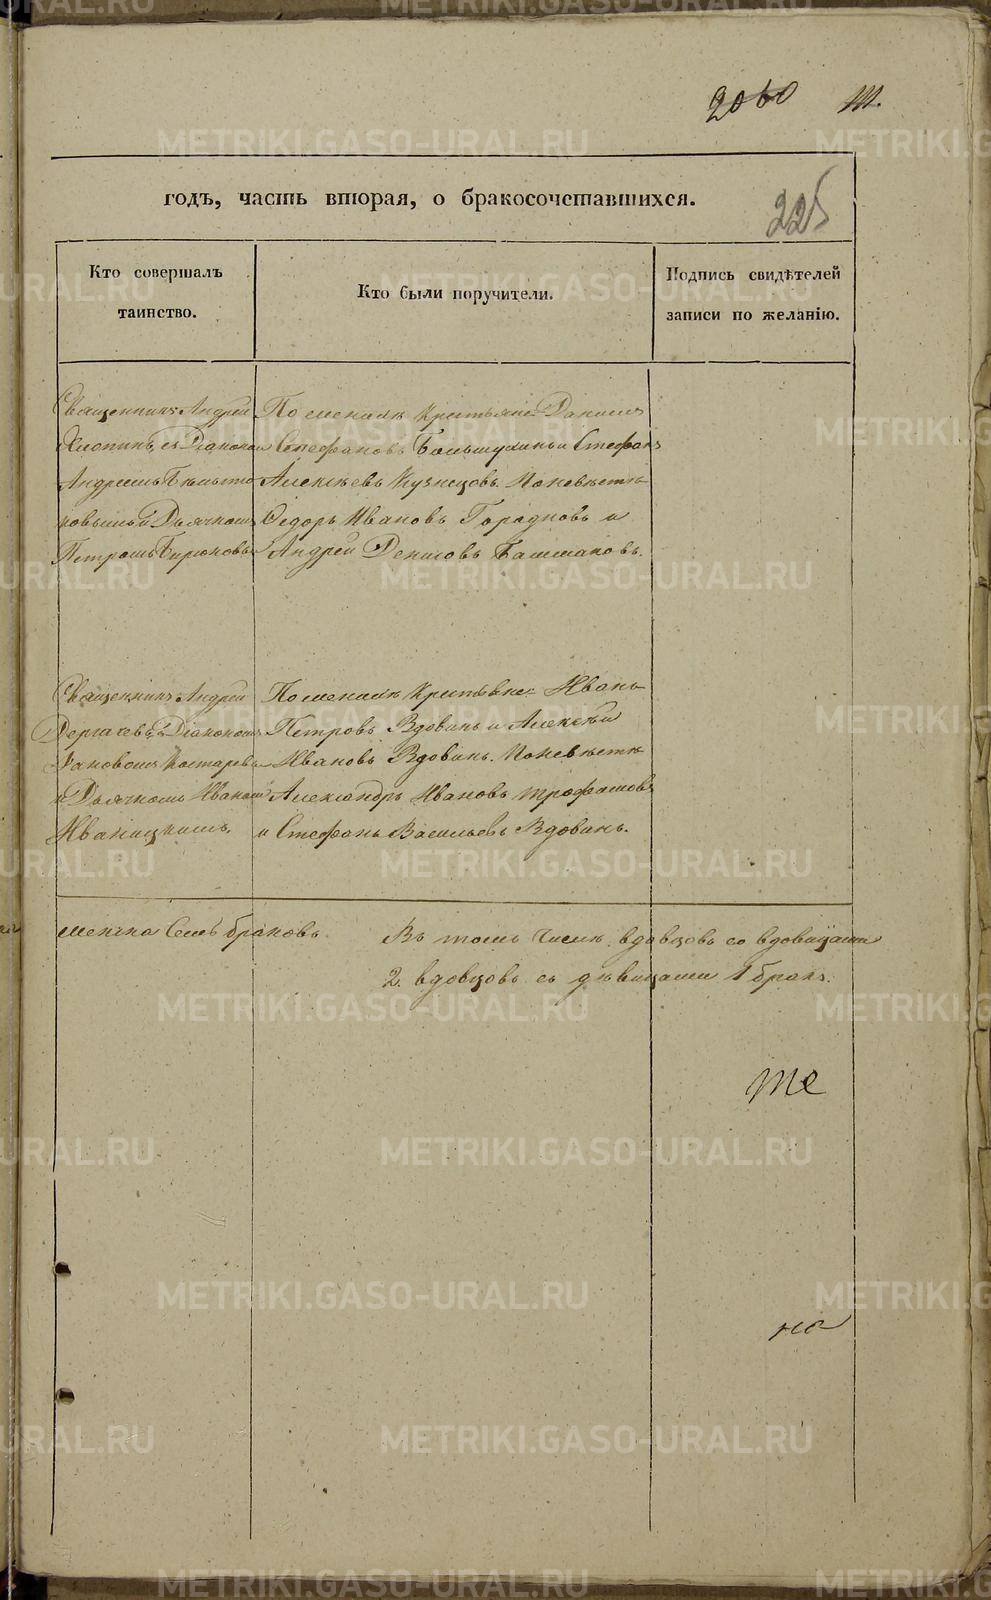 2060 т.
годъ, часть вторая, о бракосочетавшихся.
225
Кто совершалъ
таинство.
Кто были поручители.
Подпись свидѣтелей
записи по желанію.
Священникъ Андрей
съ Діакономъ
Андреемъ
и Дьячкомъ
Петромъ Бирюковымъ
По женихѣ Крестьяне Данило
Стефановъ и Стефанъ
Алексѣевъ Кузнецовъ. По невѣстѣ
Федоръ Ивановъ и
Андрей Денисовъ Башмаковъ.
Священникъ Андрей
Дергачевъ съ Діакономъ
Костаревъ
и Дьячкомъ Иваномъ
Иваницкимъ.
По женихѣ Крестьяне Иванъ
Петровъ Вдовинъ и Алексѣй
Ивановъ Вдовинъ. По невѣстѣ
Александръ Ивановъ
и Стефанъ Васильевъ Вдовинъ.
семь браковъ.
Въ томъ числѣ вдовцовъ со вдовицами
2. вдовцовъ съ дѣвицами 1 бракъ.
те
METRIKI.GASO-URAL.RU